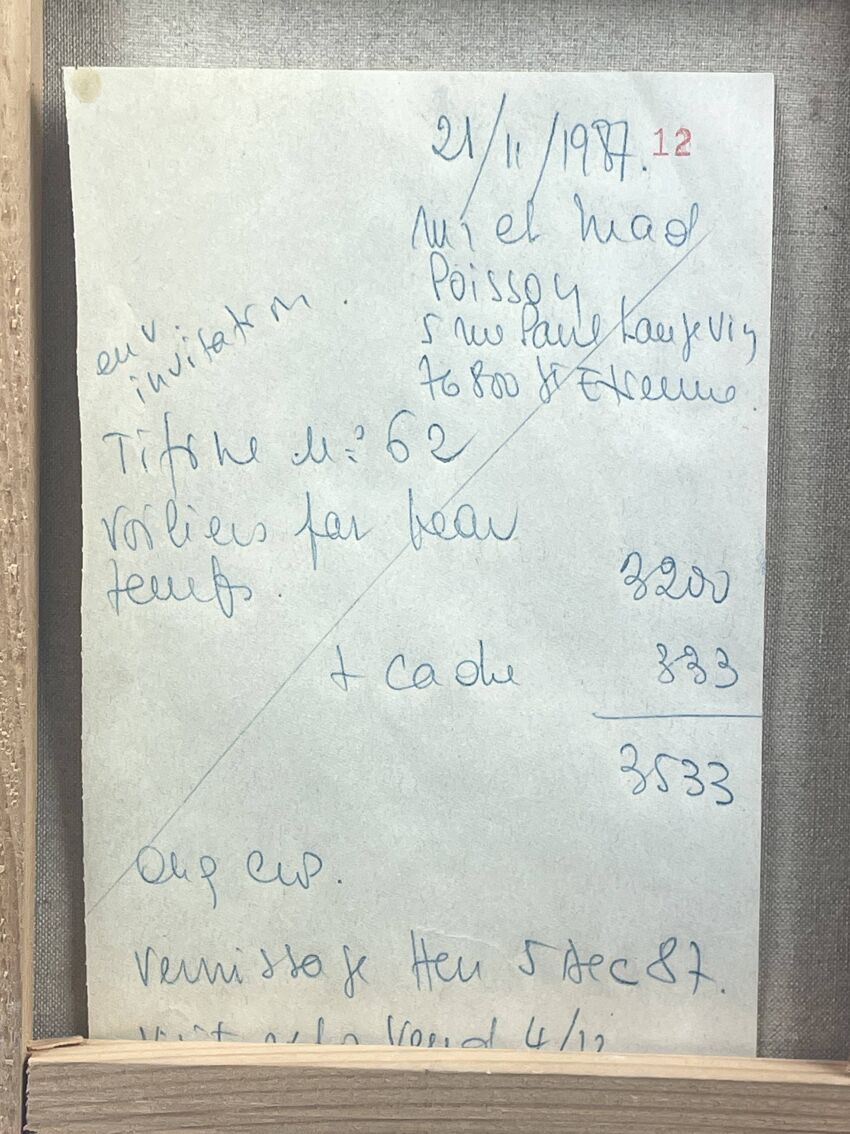 21/11/1987. 12
Mr et Mad
Poisson
5 rue Paul Langevin
76800 St Etienne
env.
invitation
N:° 62
voiliers par beau
temps.
3200
+ cadre 333
3533
vernissage 5 dec 87.
Vend 4/12